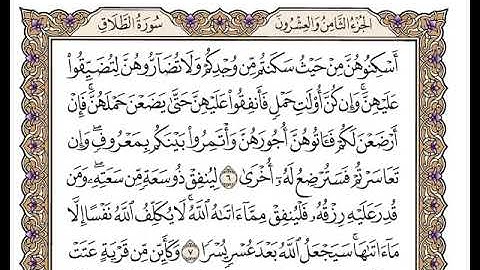 الجزء الثامن والعشرون سورة الطلاق
أَسْكِنُوهُنَّ مِنْ حَيْثُ سَكَنتُم مِّن وُجْدِكُمْ وَلَا تُضَآرُّوهُنَّ لِتُضَيِّقُوا۟
عَلَيْهِنَّ ۚ وَإِن كُنَّ أُو۟لَٰتِ حَمْلٍ فَأَنفِقُوا۟ عَلَيْهِنَّ حَتَّىٰ يَضَعْنَ حَمْلَهُنَّ ۚ فَإِنْ
أَرْضَعْنَ لَكُمْ فَـَٔاتُوهُنَّ أُجُورَهُنَّ ۖ وَأْتَمِرُوا۟ بَيْنَكُم بِمَعْرُوفٍ ۖ وَإِن
تَعَاسَرْتُمْ فَسَتُرْضِعُ لَهُۥٓ أُخْرَىٰ ٦ لِيُنفِقْ ذُو سَعَةٍ مِّن سَعَتِهِۦ ۖ وَمَن
قُدِرَ عَلَيْهِ رِزْقُهُۥ فَلْيُنفِقْ مِمَّآ ءَاتَىٰهُ ٱللَّهُ ۚ لَا يُكَلِّفُ ٱللَّهُ نَفْسًا إِلَّا
مَآ ءَاتَىٰهَا ۚ سَيَجْعَلُ ٱللَّهُ بَعْدَ عُسْرٍ يُسْرًا ٧ وَكَأَيِّن مِّن قَرْيَةٍ عَتَتْ